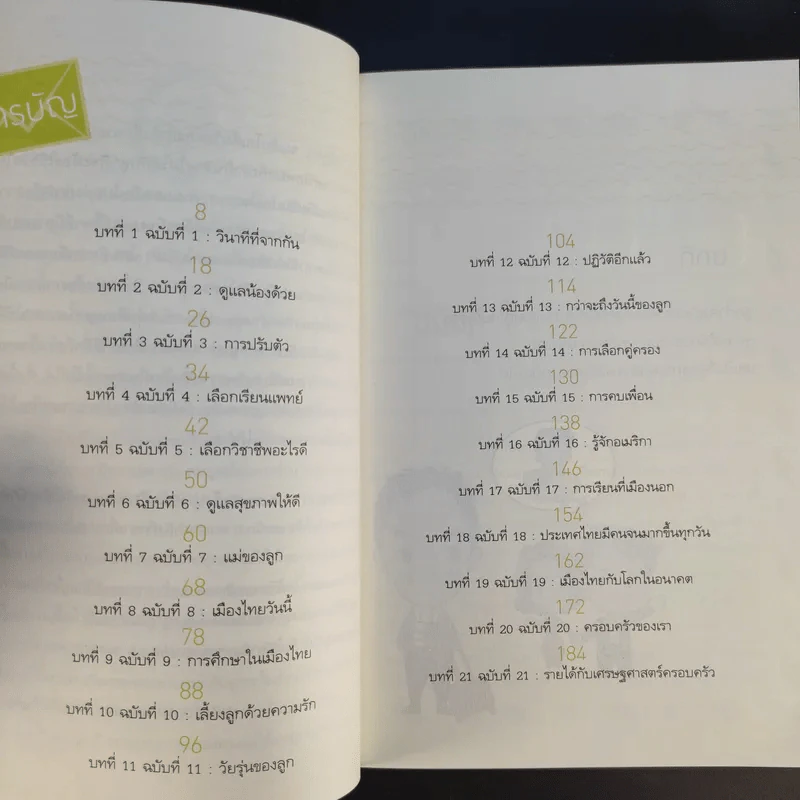 สารบัญ
8
บทที่ 1 ฉบับที่ 1 : วินาทีที่จากกัน
18
บทที่ 2 ฉบับที่ 2 : ดูแลน้องด้วย
26
บทที่ 3 ฉบับที่ 3 : การปรับตัว
34
บทที่ 4 ฉบับที่ 4 : เลือกเรียนแพทย์
42
บทที่ 5 ฉบับที่ 5 : เลือกวิชาชีพอะไรดี
50
บทที่ 6 ฉบับที่ 6 : ดูแลสุขภาพให้ดี
60
บทที่ 7 ฉบับที่ 7 : แม่ของลูก
68
บทที่ 8 ฉบับที่ 8 : เมืองไทยวันนี้
78
บทที่ 9 ฉบับที่ 9 : การศึกษาในเมืองไทย
88
บทที่ 10 ฉบับที่ 10 : เลี้ยงลูกด้วยความรัก
96
บทที่ 11 ฉบับที่ 11 : วัยรุ่นของลูก
104
บทที่ 12 ฉบับที่ 12 : ปฏิวัติอีกแล้ว
114
บทที่ 13 ฉบับที่ 13 : กว่าจะถึงวันนี้ของลูก
122
บทที่ 14 ฉบับที่ 14 : การเลือกคู่ครอง
130
บทที่ 15 ฉบับที่ 15 : การคบเพื่อน
138
บทที่ 16 ฉบับที่ 16 : รู้จักอเมริกา
146
บทที่ 17 ฉบับที่ 17 : การเรียนที่เมืองนอก
154
บทที่ 18 ฉบับที่ 18 : ประเทศไทยมีคนจนมากขึ้นทุกวัน
162
บทที่ 19 ฉบับที่ 19 : เมืองไทยกับโลกในอนาคต
172
บทที่ 20 ฉบับที่ 20 : ครอบครัวของเรา
184
บทที่ 21 ฉบับที่ 21 : รายได้กับเศรษฐศาสตร์ครอบครัว